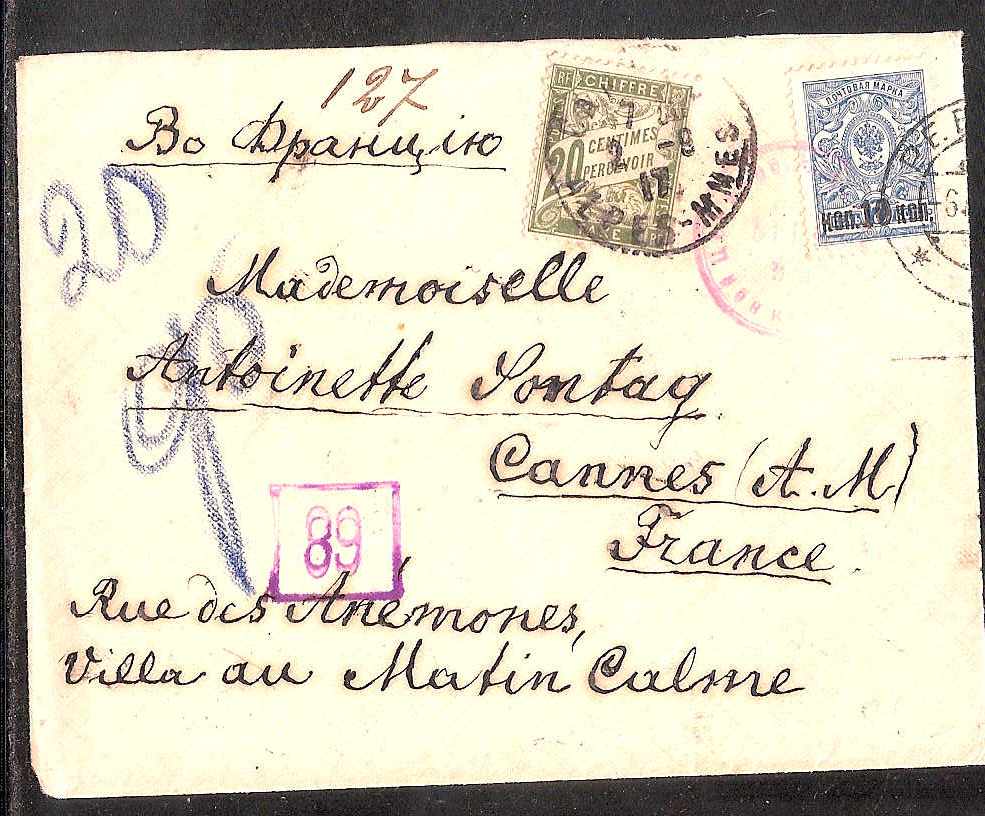 127
Во Францію
20
RF CHIFFRE
20 CENTIMES
PERCEVOIR
TAXE
17
ALPES-MMES
ПОЧТОВАЯ МАРКА
коп. 10 коп.
Mademoiselle
Antoinette Sontag
Cannes (A. M)
France.
89
Rue des Anémones,
Villa au Matin Calme